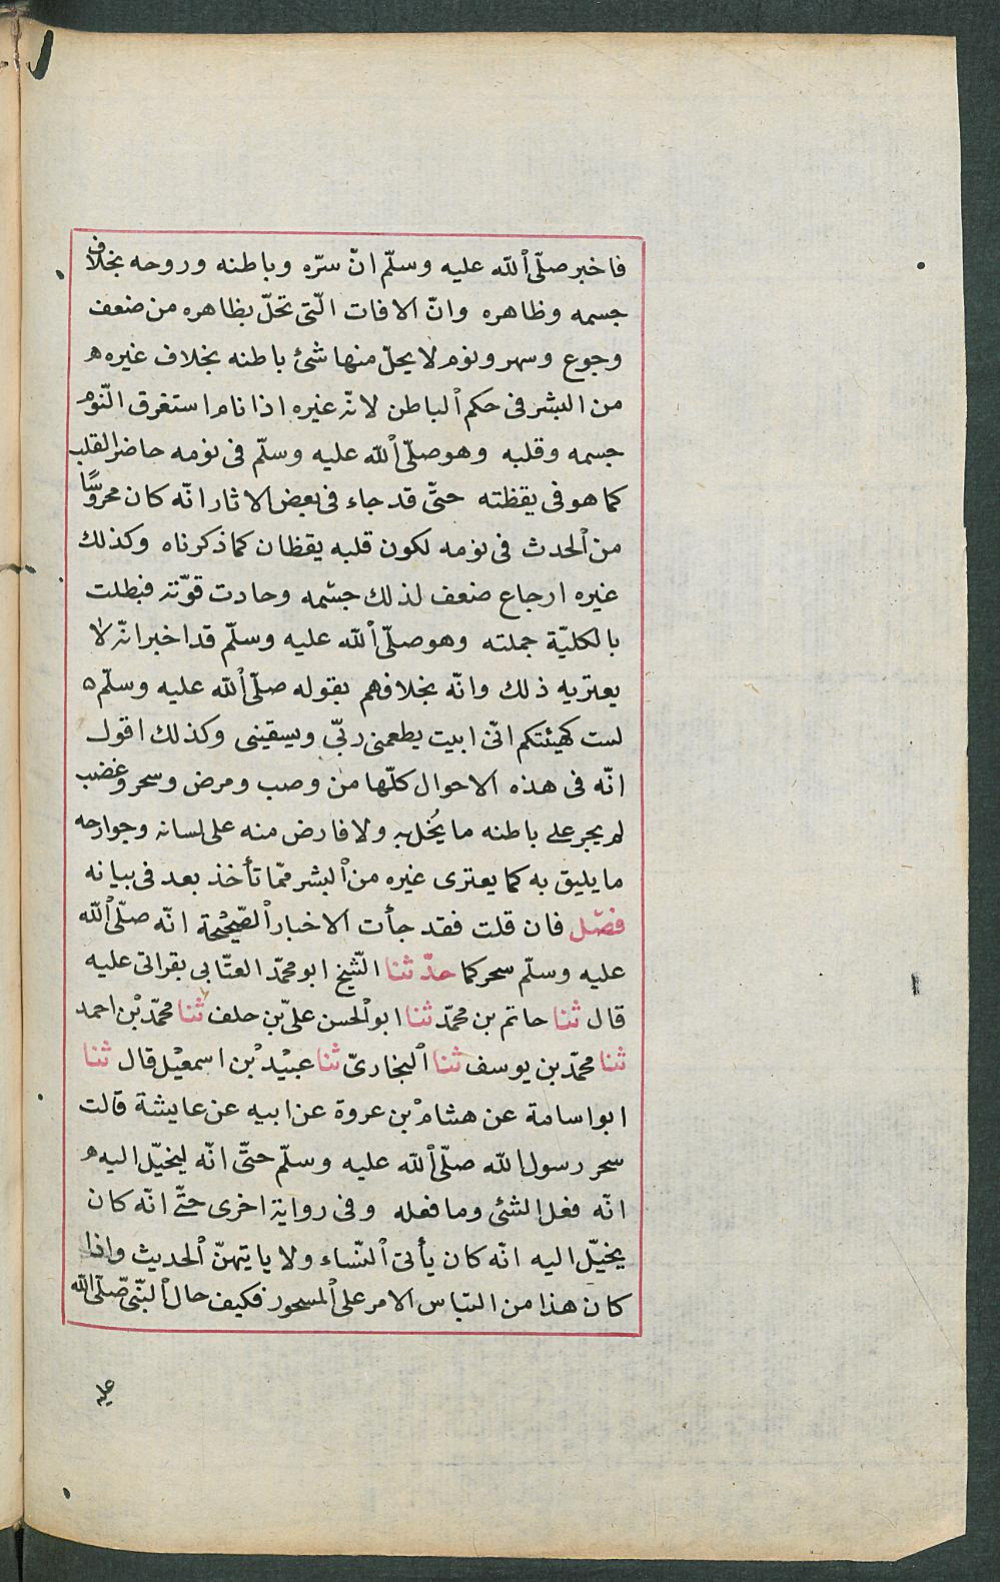 فاخبر صلّى الله عليه وسلّم انّ سرّه وباطنه وروحه بخلاف
جسمه وظاهره وانّ الافات الّتى تحلّ بظاهره من ضعف
وجوع وسهر ونوم لا يحلّ منها شئ باطنه بخلاف غيره
من البشر فى حكم الباطن لانّ غيره اذا نام استغرق النّوم
جسمه وقلبه وهو صلّى الله عليه وسلّم فى نومه حاضر القلب
كما هو فى يقظته حتّى قد جاء فى بعض الاثار انّه كان محروسًا
من الحدث فى نومه لكون قلبه يقظان كما ذكرناه وكذلك
غيره ارجاع ضعف لذلك جسمه وحادت قوّته فبطلت
بالكليّة جملته وهو صلّى الله عليه وسلّم قد اخبر انّه لا
يعتريه ذلك وانّه بخلافهم بقوله صلّى الله عليه وسلّم
لست كهيئتكم انّى ابيت يطعمنى ربّى ويسقينى وكذلك اقول
انّه فى هذه الاحوال كلّها من وصب ومرض وسحر وغضب
لم يجر على باطنه ما يُخل به ولا فارض منه على لسانه وجوارحه
ما يليق به كما يعترى غيره من البشر ممّا تأخذ بعد فى بيانه
فصل فان قلت فقد جأت الاخبار الصّحيحة انّه صلّى الله
عليه وسلّم سحر كما حدّثنا الشّيخ ابو محمّد العتّابى بقراتى عليه
قال ثنا حاتم بن محمّد ثنا ابو الحسن علىّ بن حلف ثنا محمّد بن احمد
ثنا محمّد بن يوسف ثنا البخارىّ ثنا عبيد بن اسمعيل قال ثنا
ابو اسامة عن هشام بن عروة عن ابيه عن عايشة قالت
سحر رسول الله صلّى الله عليه وسلّم حتّى انّه ليخيّل اليه
انّه فعل الشئ وما فعله وفى رواية اخرى حتّى انّه كان
يخيّل اليه انّه كان يأتى النّساء ولا يا يتهنّ الحديث واذا
كان هذا من التباس الامر على المسحور فكيف حال النّبىّ صلّى الله
عليه